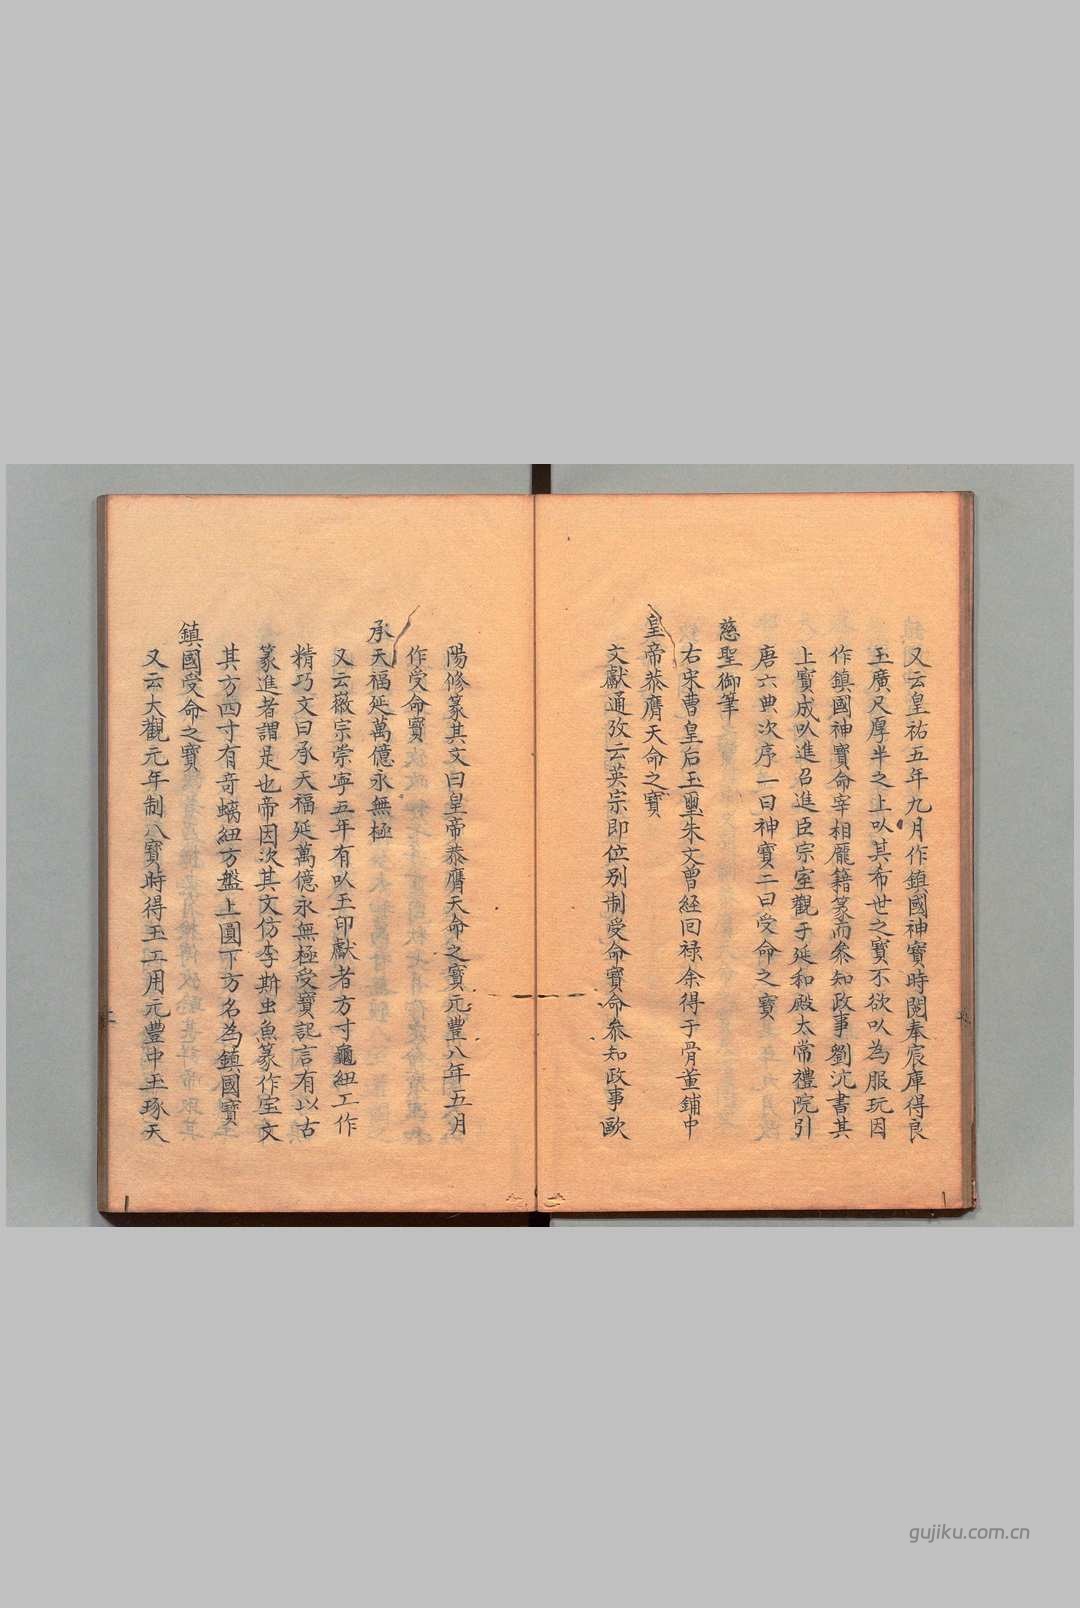 又云皇祐五年九月作鎮國神寶時閱奉宸庫得良
玉廣尺厚半之上以其希世之寶不欲以為服玩因
作鎮國神寶命宰相龐籍篆而叅知政事劉沆書其
上寶成以進召進臣宗室觀于延和殿太常禮院引
唐六典次序一曰神寶二曰受命之寶
慈聖御筆
右宋曹皇后玉璽朱文曾經回祿余得于骨董鋪中
皇帝恭膺天命之寶
文獻通攷云英宗即位别制受命寶命叅知政事歐
陽修篆其文曰皇帝恭膺天命之寶元豐八年五月
作受命寶
承天福延萬億永無極
又云徽宗崇寧五年有以玉印獻者方寸龜紐工作
精巧文曰承天福延萬億永無極受寶記言有以古
篆進者謂是也帝因次其文仿李斯虫魚篆作宝文
其方四寸有奇螭紐方盤上圓下方名為鎮國寶
鎮國受命之寶
又云大觀元年制八寶時得玉工用元豐中玉琢天
gujiku.com.cn